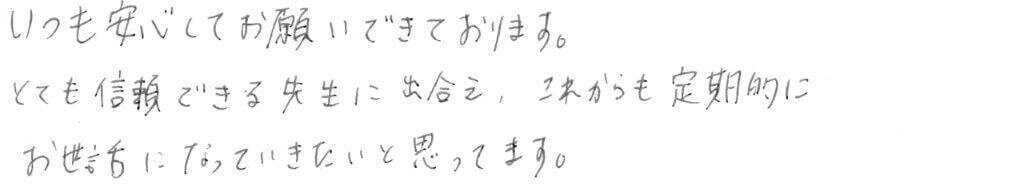 いつも安心してお願いできております。
とても信頼できる先生に出合え、これからも定期的に
お世話になっていきたいと思ってます。